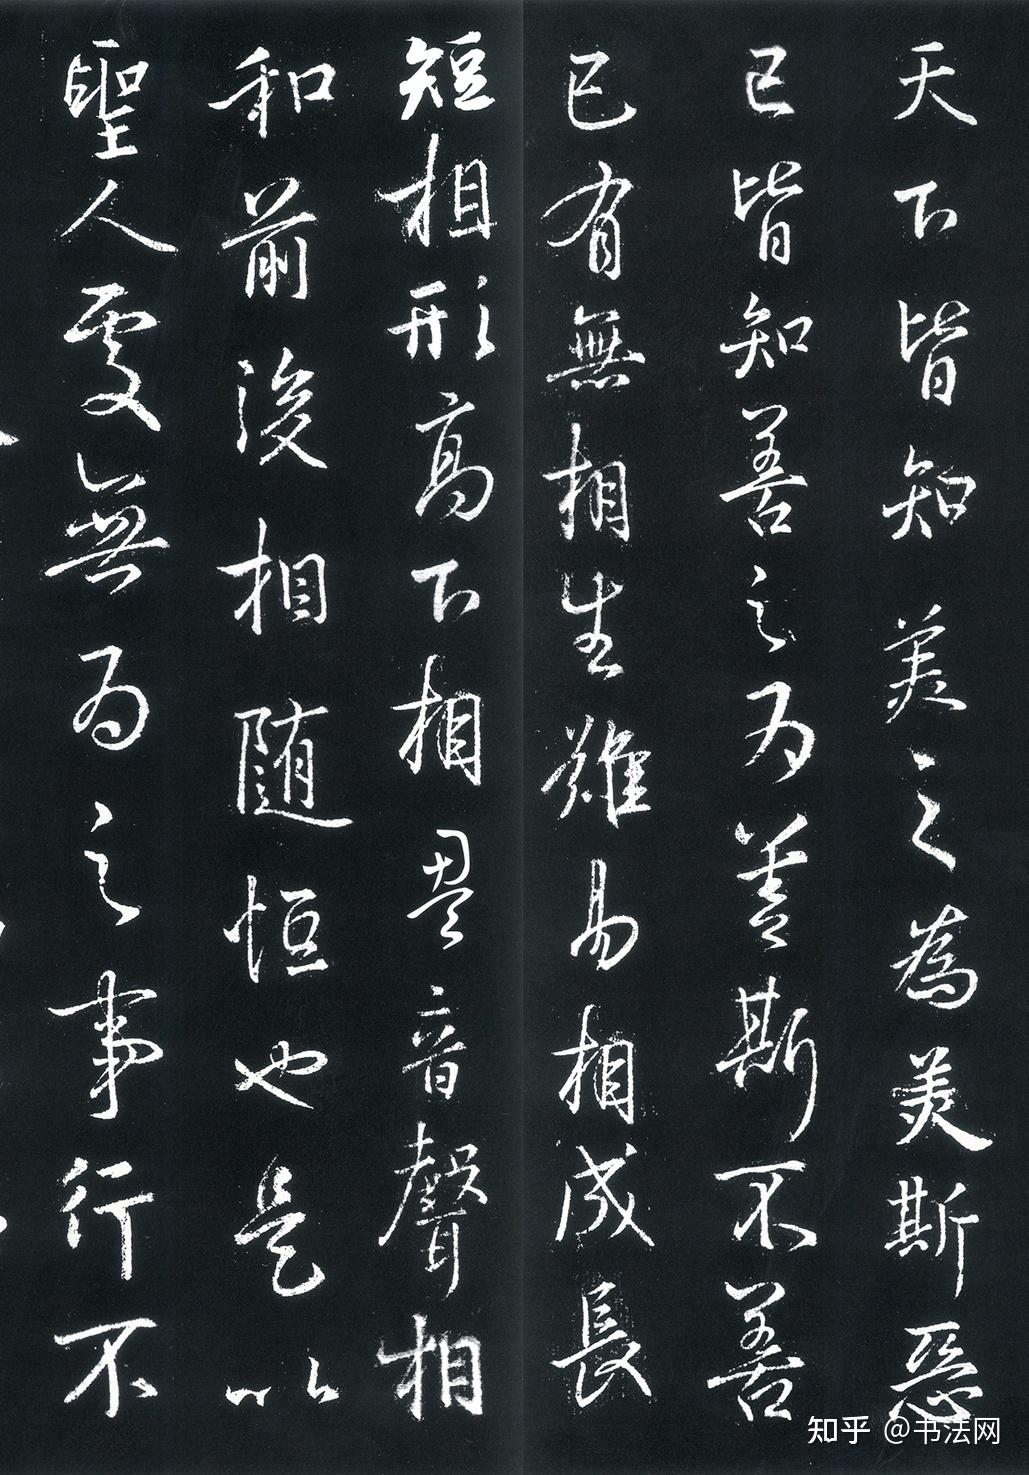 天下皆知美之為美斯惡
已皆知善之为善斯不善
已有無相生難易相成長
短相形高下相盈音聲相
和前後相随恒也是以
聖人處無为之事行不
知乎 @书法网